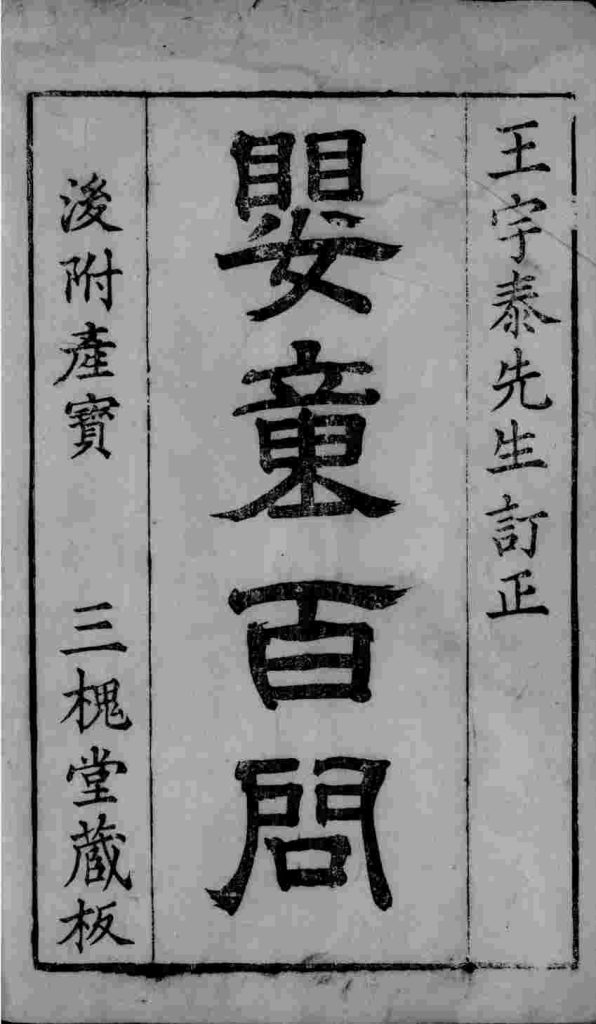 王宇泰先生訂正
嬰童百問
後附產寶 三槐堂藏板